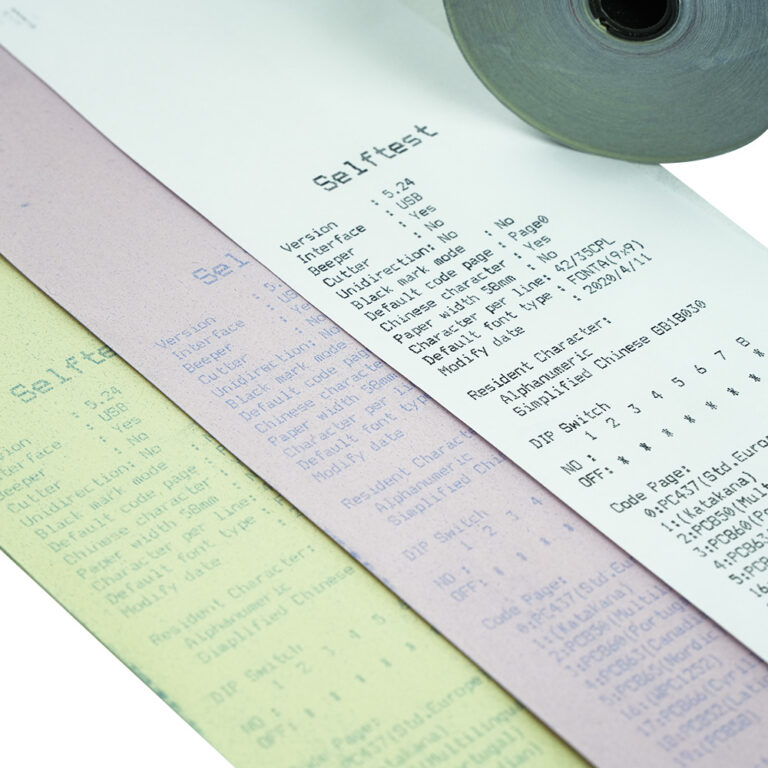 Selftest
Version : 5.24
Interface : USB
Beeper : Yes
Cutter : No
Unidirection: No
Black mark mode : No
Default code page : Page0
Chinese character : Yes
Paper width 58mm : No
Character per line: 42/35CPL
Default font type : FONTA(9x9)
Modify date : 2020/4/11
Resident Character:
Alphanumeric
Simplified Chinese GB18030
DIP Switch
1 2 3 4 5 6 7 8
NO :
OFF: * * * * * * * *
Code Page:
0:PC437(Std.Europe
1:(Katakana)
2:PC850(Mult
3:PC860(Por
4:PC863
5:PC
16
Sel
Version : 5.
Interface : US
Beeper : Ye
Cutter : No
Unidirection: No
Black mark mode
Default code page
Chinese characte
Paper width 58mm
Character per li
Default font typ
Modify date
Resident Charact
Alphanumeric
Simplified Chi
DIP Switch
1 2 3 4
NO :
OFF: * * * *
Code Page:
0:PC437(Std.Eu
1:(Katakana)
2:PC850(Multil
3:PC860(Portug
4:PC863(Canadi
5:PC865(Nordic
16:(WPC1252)
17:PC866(Cyril
18:PC852(Latin
19:(PC858)
Selfte
sion : 5.24
terface : USB
Beeper : Yes
Cutter : No
Unidirection: No
Black mark mode :
Default code page :
Chinese character :
Paper width 58mm :
Character per line:
Default font type :
Modify date :
Resident Character:
Alphanumeric
Simplified Chinese
DIP Switch
1 2 3 4 5
NO :
OFF: * * * * *
Code Page:
PC437(Std.Europe
Katakana)
(Multilingu
rtugal)